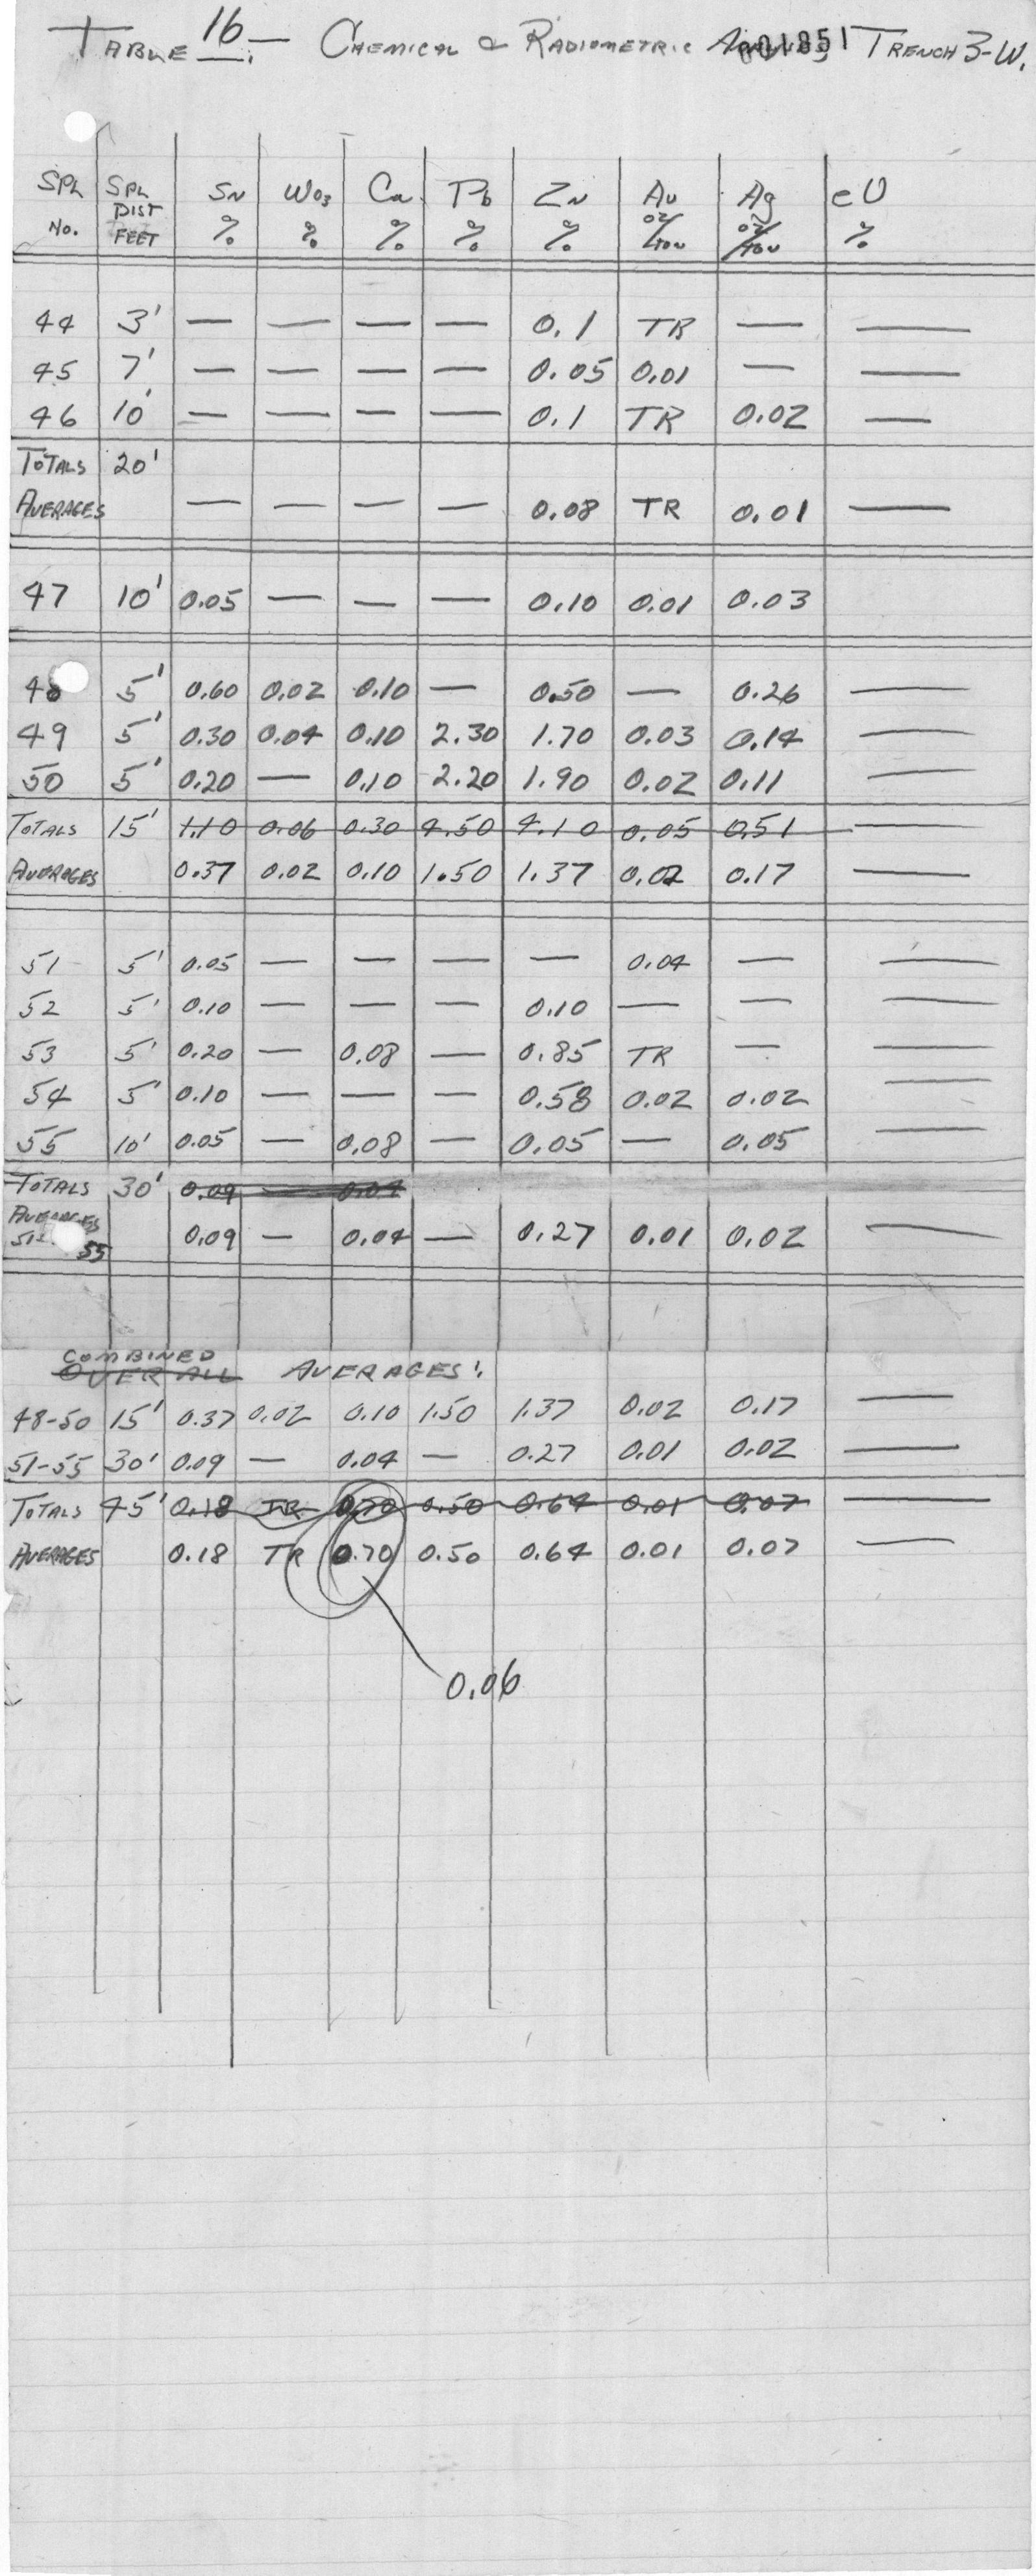 TABLE 16. — CHEMICAL & RADIOMETRIC 001851 TRENCH 3-W.
SPL No. SPL DIST FEET Sn % WO3 % Cu % Pb % Zn % Au oz/ton Ag oz/ton eU %
44 3' — — — — 0.1 TR — —
45 7' — — — — 0.05 0.01 — —
46 10' — — — — 0.1 TR 0.02 —
TOTALS 20'
AVERAGES — — — — 0.08 TR 0.01 —
47 10' 0.05 — — — 0.10 0.01 0.03
48 5' 0.60 0.02 0.10 — 0.50 — 0.26 —
49 5' 0.30 0.04 0.10 2.30 1.70 0.03 0.14 —
50 5' 0.20 — 0.10 2.20 1.90 0.02 0.11 —
TOTALS 15' 1.10 0.06 0.30 4.50 4.10 0.05 0.51 —
AVERAGES 0.37 0.02 0.10 1.50 1.37 0.02 0.17 —
51 5' 0.05 — — — — 0.04 — —
52 5' 0.10 — — — 0.10 — — —
53 5' 0.20 — 0.08 — 0.85 TR — —
54 5' 0.10 — — — 0.58 0.02 0.02 —
55 10' 0.05 — 0.08 — 0.05 — 0.05 —
TOTALS 30' 0.09 — 0.04
AVERAGES 51-55 0.09 — 0.04 — 0.27 0.01 0.02 —
COMBINED
OVER ALL AVERAGES:
48-50 15' 0.37 0.02 0.10 1.50 1.37 0.02 0.17 —
51-55 30' 0.09 — 0.04 — 0.27 0.01 0.02 —
TOTALS 45' 0.18 TR 0.70 0.50 0.64 0.01 0.07 —
AVERAGES 0.18 TR 0.70 0.50 0.64 0.01 0.07 —
0.06